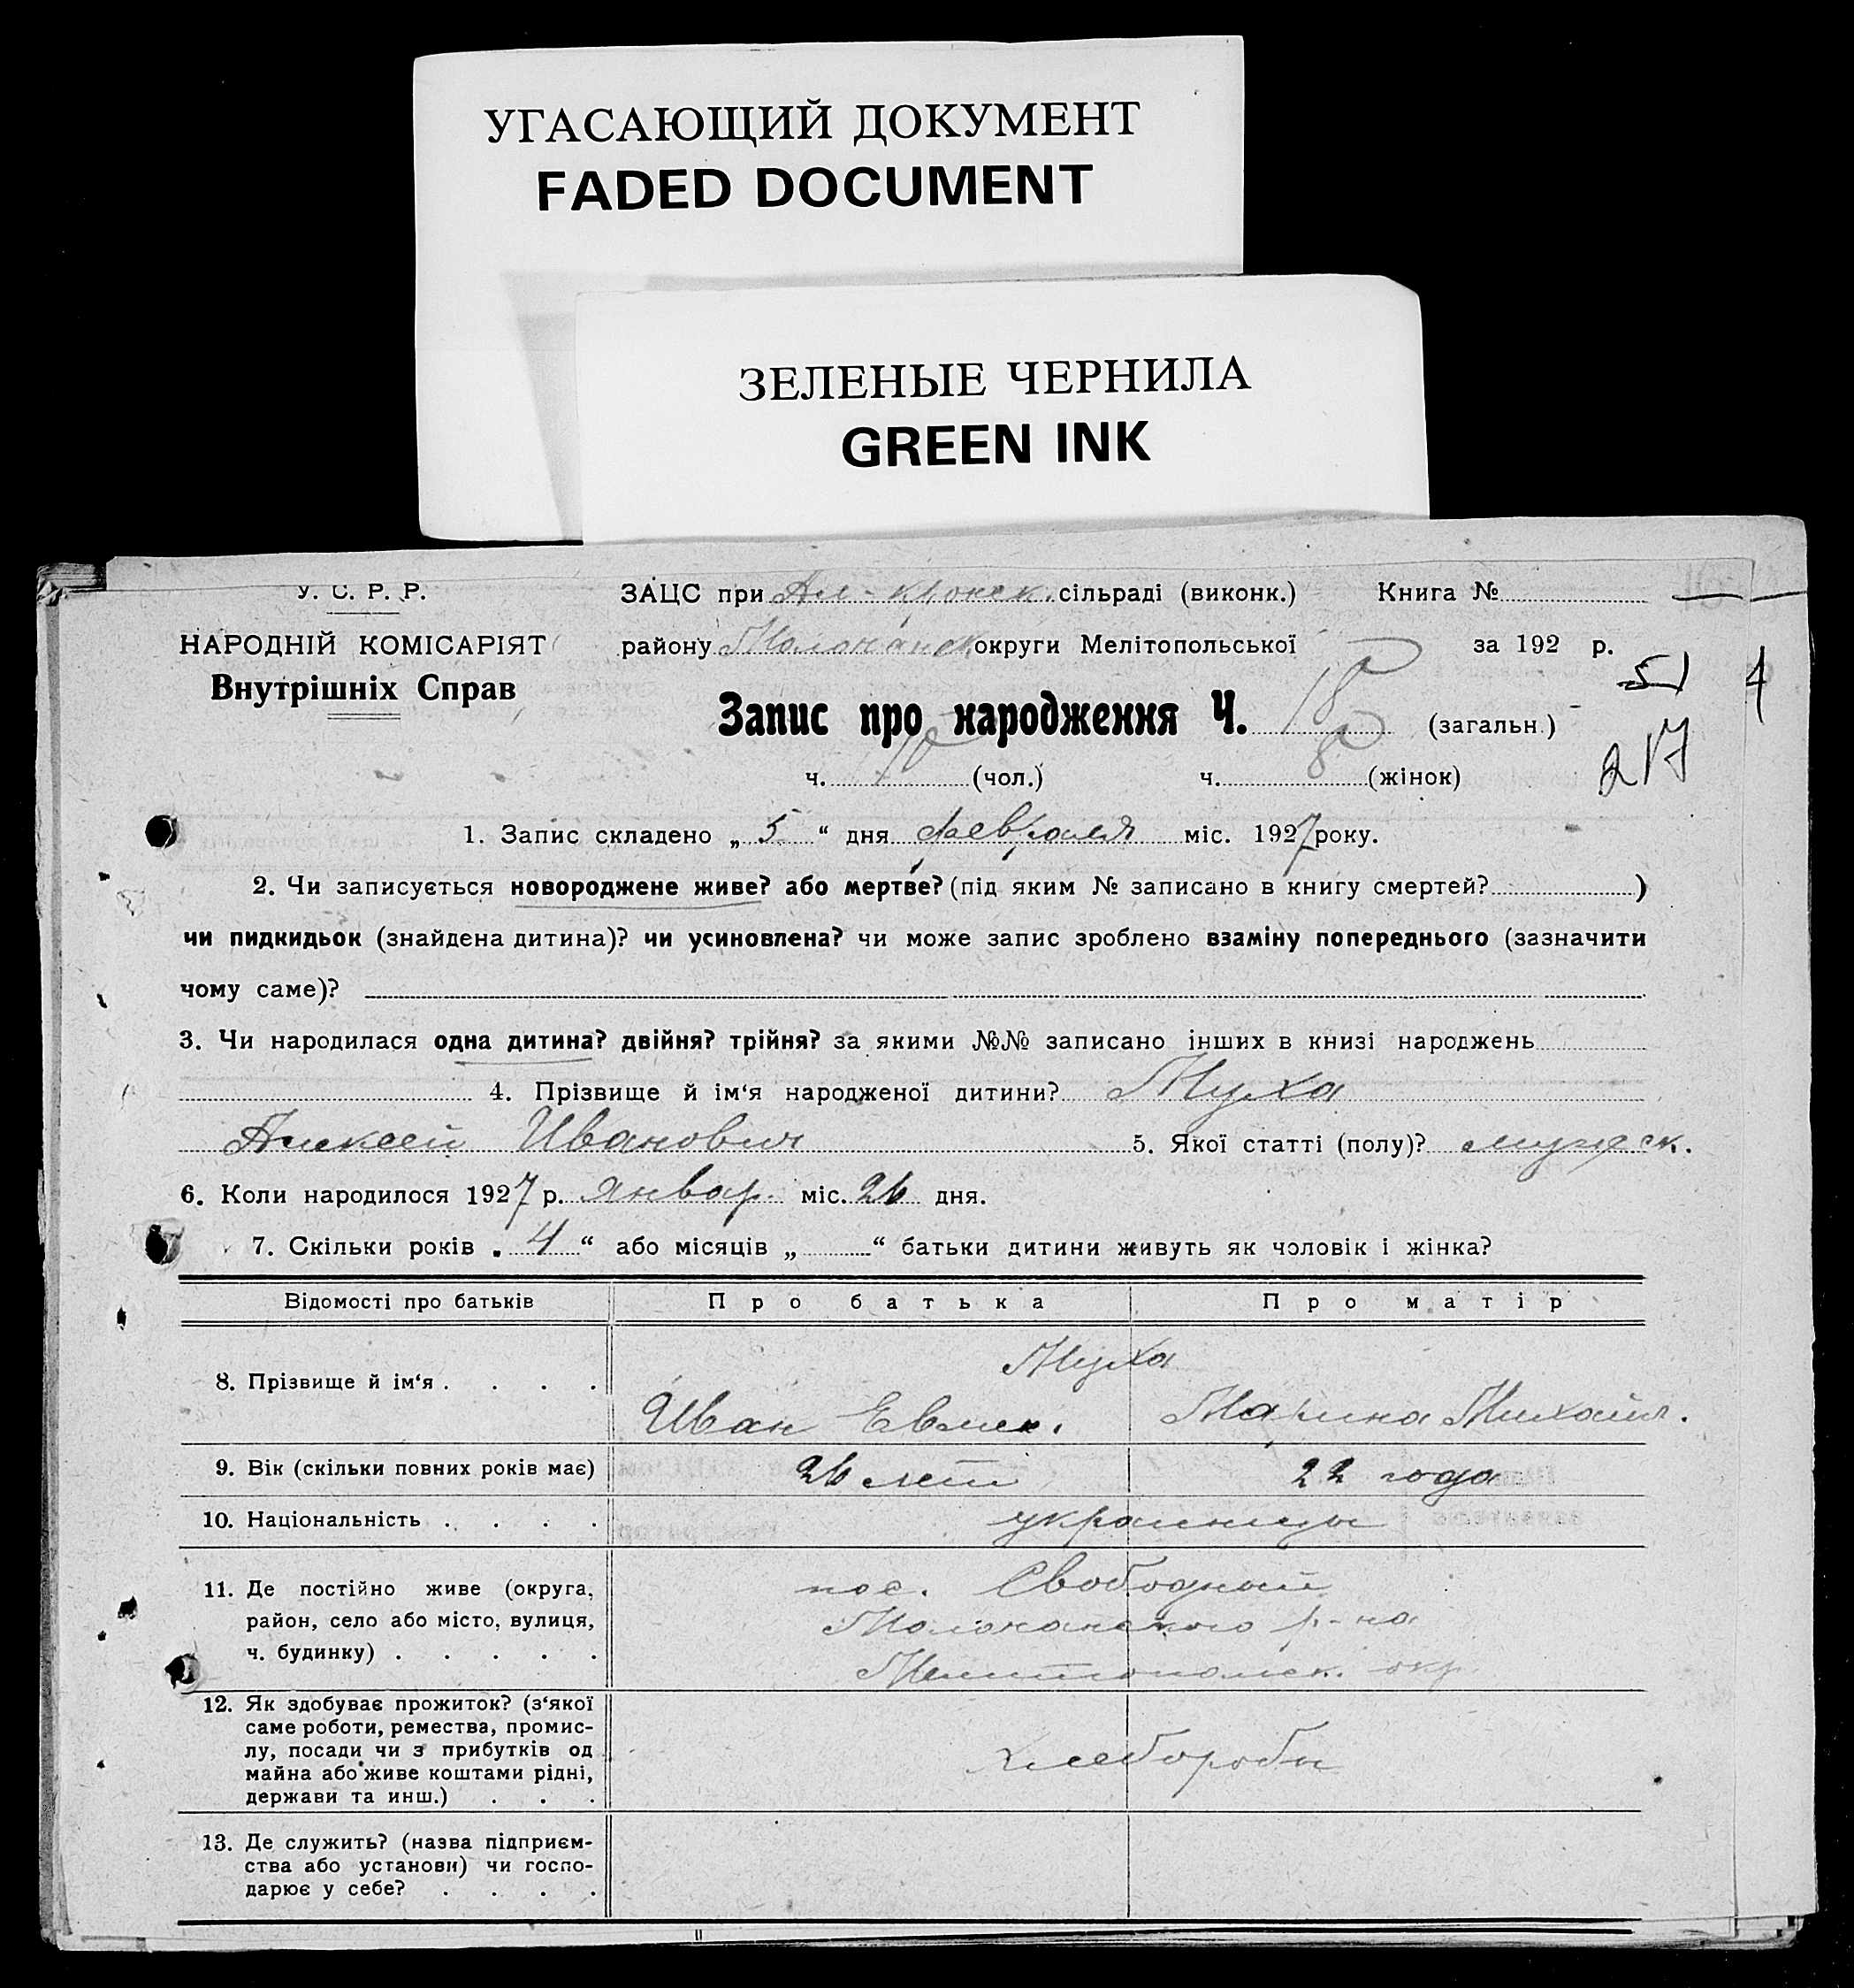 УГАСАЮЩИЙ ДОКУМЕНТ
FADED DOCUMENT
ЗЕЛЕНЫЕ ЧЕРНИЛА
GREEN INK
У. С. Р. Р.
НАРОДНІЙ КОМІСАРІЯТ
Внутрішніх Справ
ЗАЦС при сільраді (виконк.) Книга №
району округи Мелітопольської за 192 р.
51 4
Запис про народження Ч. 18 (загальн.)
217
ч. 10 (чол.) ч. 8 (жінок)
1. Запис складено „ 5 “ дня февраля міс. 1927 року.
2. Чи записується новороджене живе? або мертве? (під яким № записано в книгу смертей? )
чи пидкидьок (знайдена дитина)? чи усиновлена? чи може запис зроблено взаміну попереднього (зазначити
чому саме)?
3. Чи народилася одна дитина? двійня? трійня? за якими №№ записано інших в книзі народжень
4. Прізвище й ім‘я народженої дитини? Муха
Алексей Иванович 5. Якої статті (полу)? мужск.
6. Коли народилося 1927 р. январ. міс. 26 дня.
7. Скільки років „ 4 “ або місяців „ “ батьки дитини живуть як чоловік і жінка?
Відомості про батьків Про батька Про матір
Муха
8. Прізвище й ім‘я . . . .
Иван Марина Михайл.
9. Вік (скільки повних років має) 26 лет 22 года
10. Національність . . . . украинцы
11. Де постійно живе (округа,
район, село або місто, вулиця,
ч. будинку) . . . . .
пос. Свободный
Молочанского р-на
Мелитопольск. окр.
12. Як здобуває прожиток? (з‘якої
саме роботи, ремества, промис-
лу, посади чи з прибутків од
майна або живе коштами рідні,
держави та инш.) . . .
хлеборобы
13. Де служить? (назва підприєм-
ства або установи) чи госпо-
дарює у себе? . . . .